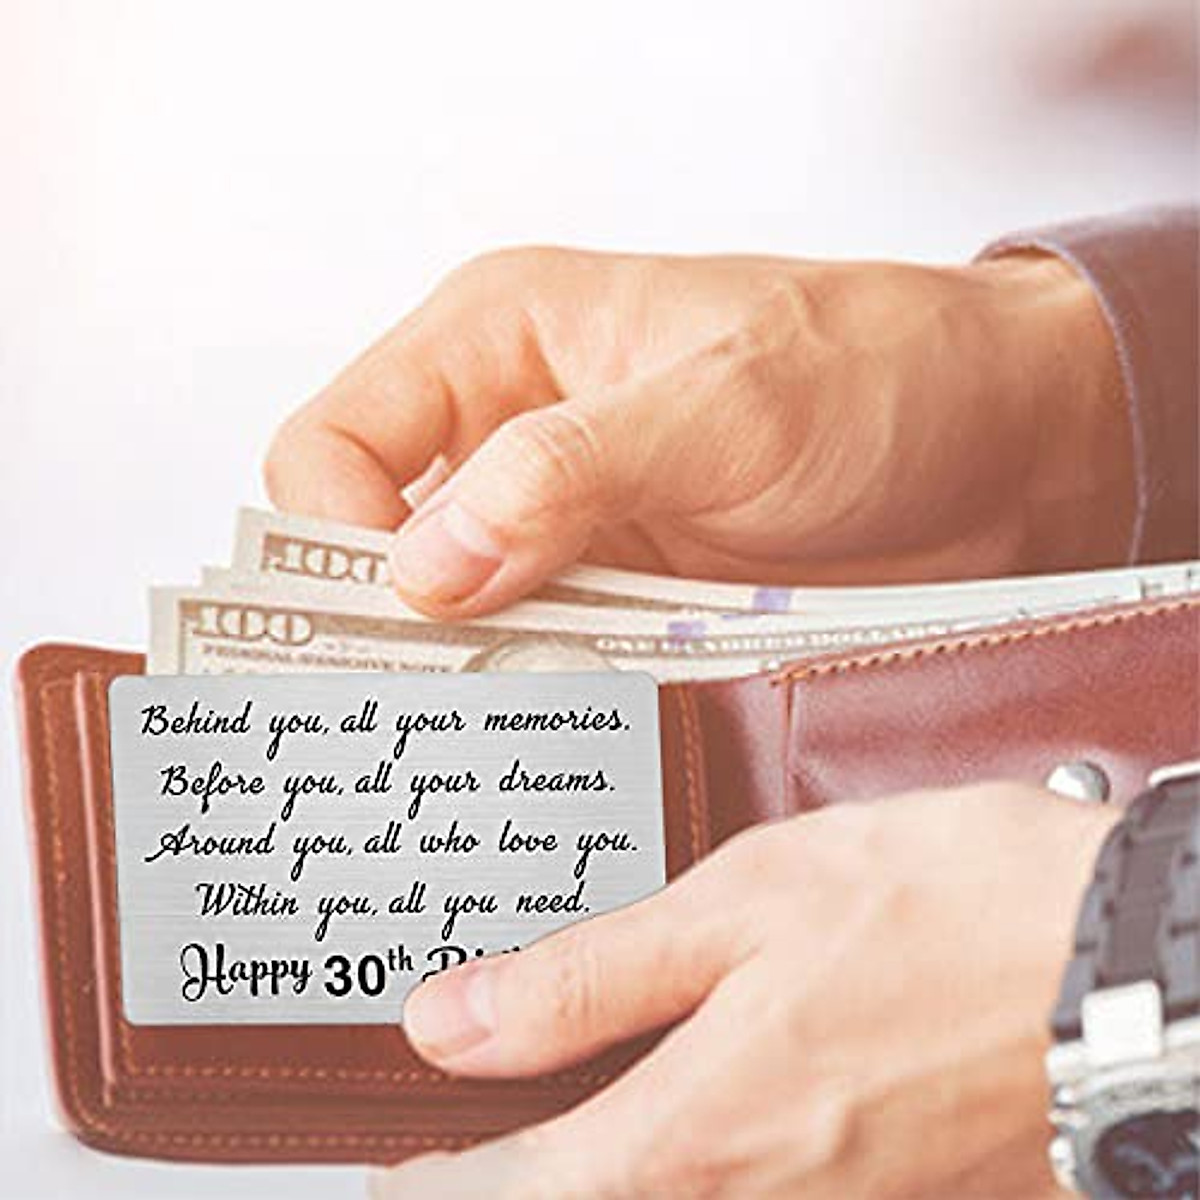 100
100
FEDERAL RESERVE NOTE
ONE HUNDRED DOLLARS
Behind you, all your memories.
Before you, all your dreams.
Around you, all who love you.
Within you, all you need.
Happy 30th